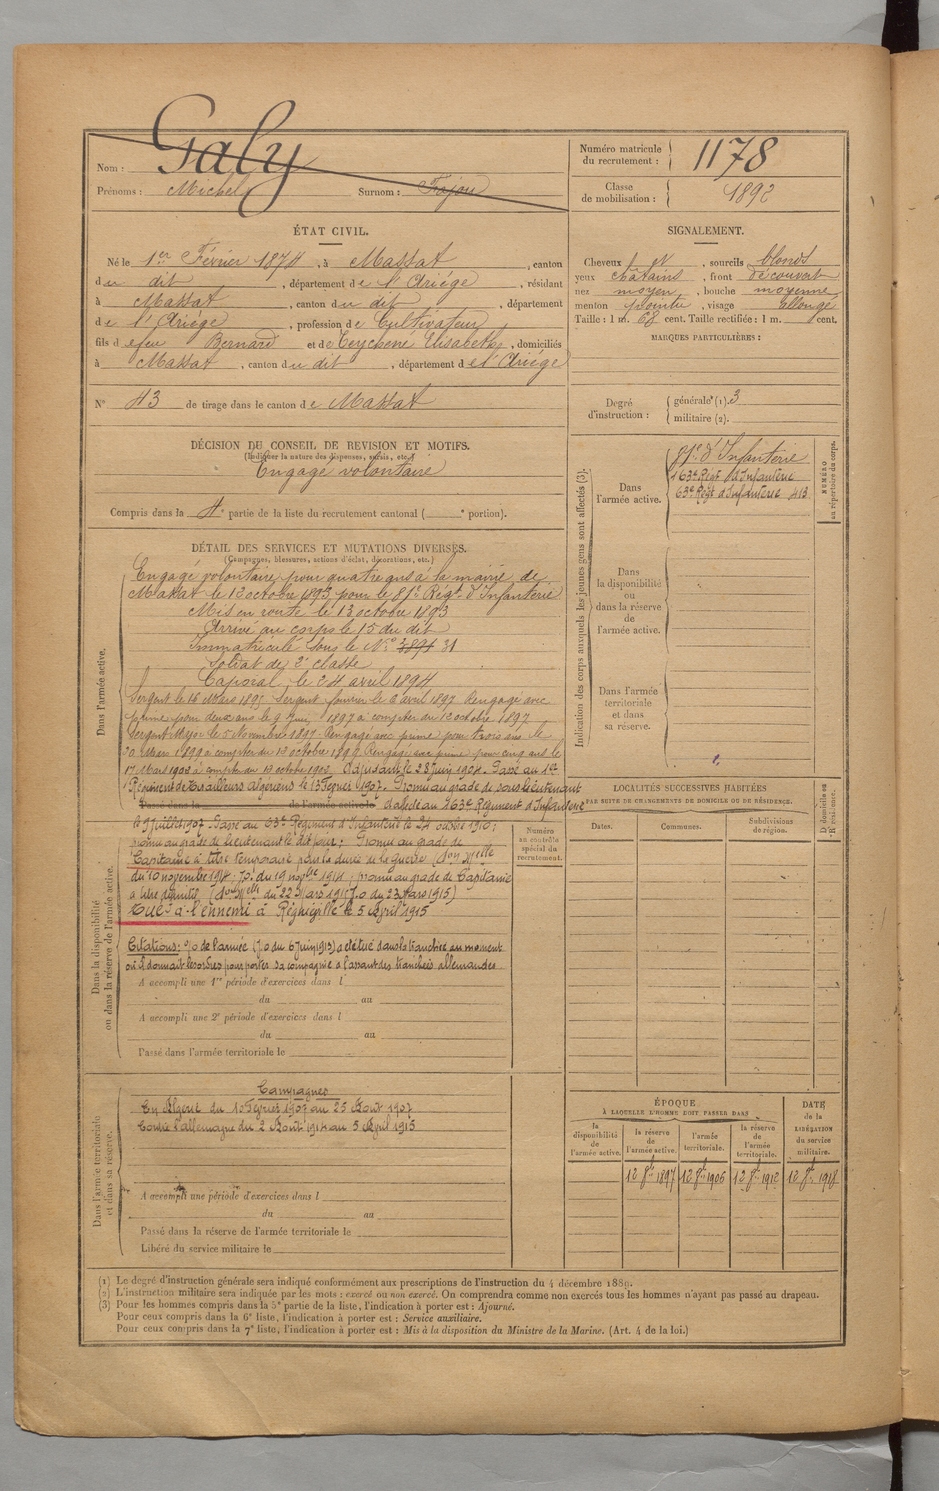 Nom : Galy
Prénoms : Michel Surnom : Fajou
Numéro matricule du recrutement : 1178
Classe de mobilisation : 1892
ÉTAT CIVIL.
Né le 1er Février 1874, à Massat, canton
du dit, département de l'Ariége, résidant
à Massat, canton du dit, département
de l'Ariége, profession de Cultivateur
fils de feu Bernard et de Teychené Elisabeth, domiciliés
à Massat, canton du dit, département de l'Ariége
N° 43 de tirage dans le canton de Massat
SIGNALEMENT.
Cheveux et, sourcils blonds
yeux châtains, front découvert
nez moyen, bouche moyenne
menton pointu, visage allongé
Taille : 1 m. 68 cent. Taille rectifiée : 1 m. cent.
MARQUES PARTICULIÈRES :
Degré d'instruction : générale (1). 3
militaire (2).
DÉCISION DU CONSEIL DE REVISION ET MOTIFS.
(Indiquer la nature des dispenses, sursis, etc.)
Engagé volontaire
Compris dans la 4e partie de la liste du recrutement cantonal ( e portion).
DÉTAIL DES SERVICES ET MUTATIONS DIVERSES.
(Campagnes, blessures, actions d'éclat, décorations, etc.)
Dans l'armée active.
Engagé volontaire pour quatre ans à la mairie de
Massat le 13 octobre 1893 pour le 81e Régt d'Infanterie
Mis en route le 13 octobre 1893
Arrivé au corps le 15 du dit
Immatriculé sous le No 3891 31
Soldat de 2e classe
Caporal le 24 avril 1894
Sergent le 16 Mars 1895 Sergent fourrier le avril 1897 Rengagé avec
prime pour deux ans le 9 1897 à compter du 13 octobre 1897
Sergent Major le 5 Novembre 1897 Rengagé avec prime pour trois ans le
30 Mars 1899 à compter du 13 octobre 1899 Rengagé avec prime pour cinq ans le
17 Mars 1902 à compter du 13 octobre 1902 Adjudant le 28 juin 1904. Passé au 1er
Régiment de Tirailleurs algériens le 13 Février 1907. Promu au grade de sous lieutenant
Passé dans la de l'armée active le d affecté au 163e Régiment d'Infanterie
le 9 juillet 1907 Passé au 63e Régiment d'Infanterie le 24 octobre 1910 ;
promu au grade de lieutenant le dit jour ; Promu au grade de
Capitaine à titre temporaire pour la durée de la Guerre (Don Melle
du 10 novembre 1914 ; J.O. du 19 novbre 1914 ; promu au grade de Capitaine
à titre définitif (Don Melle du 22 Mars 1915 J.O du 23 Mars 1915)
Tué à l'ennemi à Régniéville le 5 Avril 1915
Citations : O/o de l'armée (J.O du 6 juin 1915) a été tué dans la tranchée au moment
où il donnait les ordres pour porter sa compagnie à l'assaut des tranchées allemandes
Dans la disponibilité ou dans la réserve de l'armée active.
A accompli une 1re période d'exercices dans l
du au
A accompli une 2e période d'exercices dans l
du au
Passé dans l'armée territoriale le
Numéro au contrôle spécial du recrutement.
Dans l'armée territoriale et dans sa réserve.
Campagnes
En Algerie du 13 Février 1907 au 25 Août 1907
Contre l'allemagne du 2 Août 1914 au 5 Avril 1915
A accompli une période d'exercices dans l
du au
Passé dans la réserve de l'armée territoriale le
Libéré du service militaire le
Indication des corps auxquels les jeunes gens sont affectés (3).
Dans l'armée active.
81e d'Infanterie
163e Régt d'Infanterie
63e Régt d'Infanterie 413
NUMÉRO au répertoire du corps.
Dans la disponibilité ou dans la réserve de l'armée active.
Dans l'armée territoriale et dans sa réserve.
LOCALITÉS SUCCESSIVES HABITÉES
PAR SUITE DE CHANGEMENTS DE DOMICILE OU DE RÉSIDENCE.
Dates.
Communes.
Subdivisions de région.
D. domicile ou R. résidence.
ÉPOQUE
À LAQUELLE L'HOMME DOIT PASSER DANS
la disponibilité de l'armée active.
la réserve de l'armée active.
l'armée territoriale.
la réserve de l'armée territoriale.
DATE de la LIBÉRATION du service militaire.
12 8bre 1897 12 8bre 1906 12 8bre 1912 12 8bre 1918
(1) Le degré d'instruction générale sera indiqué conformément aux prescriptions de l'instruction du 4 décembre 1889.
(2) L'instruction militaire sera indiquée par les mots : exercé ou non exercé. On comprendra comme non exercés tous les hommes n'ayant pas passé au drapeau.
(3) Pour les hommes compris dans la 5e partie de la liste, l'indication à porter est : Ajourné.
Pour ceux compris dans la 6e liste, l'indication à porter est : Service auxiliaire.
Pour ceux compris dans la 7e liste, l'indication à porter est : Mis à la disposition du Ministre de la Marine. (Art. 4 de la loi.)